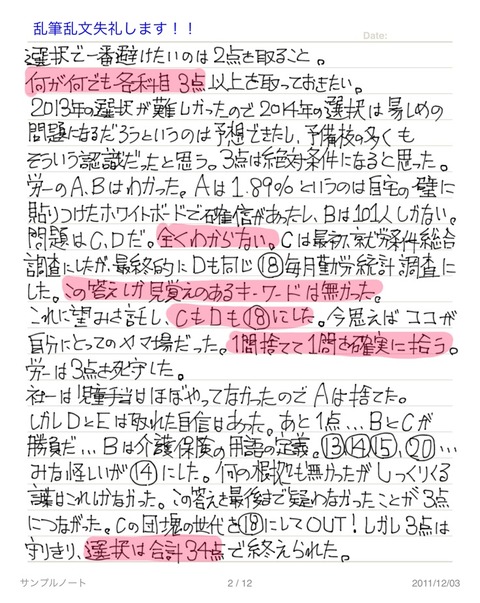 乱筆乱文失礼します！！
Date:
選択で一番避けたいのは2点を取ること。
何が何でも各科目3点以上を取っておきたい。
2013年の選択が難しかったので2014年の選択は易しめの
問題になるだろうというのは予想できたし、予備校の多くも
そういう認識だったと思う。3点は絶対条件になると思った。
労一のA.Bはわかった。Aは1.89%というのは自宅の壁に
貼りつけたホワイトボードで確信があったし、Bは101人しかない。
問題はC,Dだ。全くわからない。Cは最初、就労条件総合
調査にしたが、最終的にDも同じ⑱毎月勤労統計調査に
した。この答えしか見覚えのあるキーワードは無かった。
これに望みを託し、CもDも⑱にした。今思えばココが
自分にとってのヤマ場だった。1問捨てて1問を確実に拾う。
労一は3点を死守した。
社一は児童手当はほぼやってなかったのでAは捨てた。
しかしDとEは取れた自信はあった。あと1点…BとCが
勝負だ…Bは介護保険の用語の定義。⑬⑭⑮、⑳…
みな怪しいが⑭にした。何の根拠も無かったがしっくりくる
言葉はこれしかなかった。この答えを最後まで疑わなかったことが3点
につながった。Cの団塊の世代を⑱にしてOUT！しかし3点は
守りきり、選択は合計34点で終えられた。
サンプルノート
2 / 12
2011/12/03